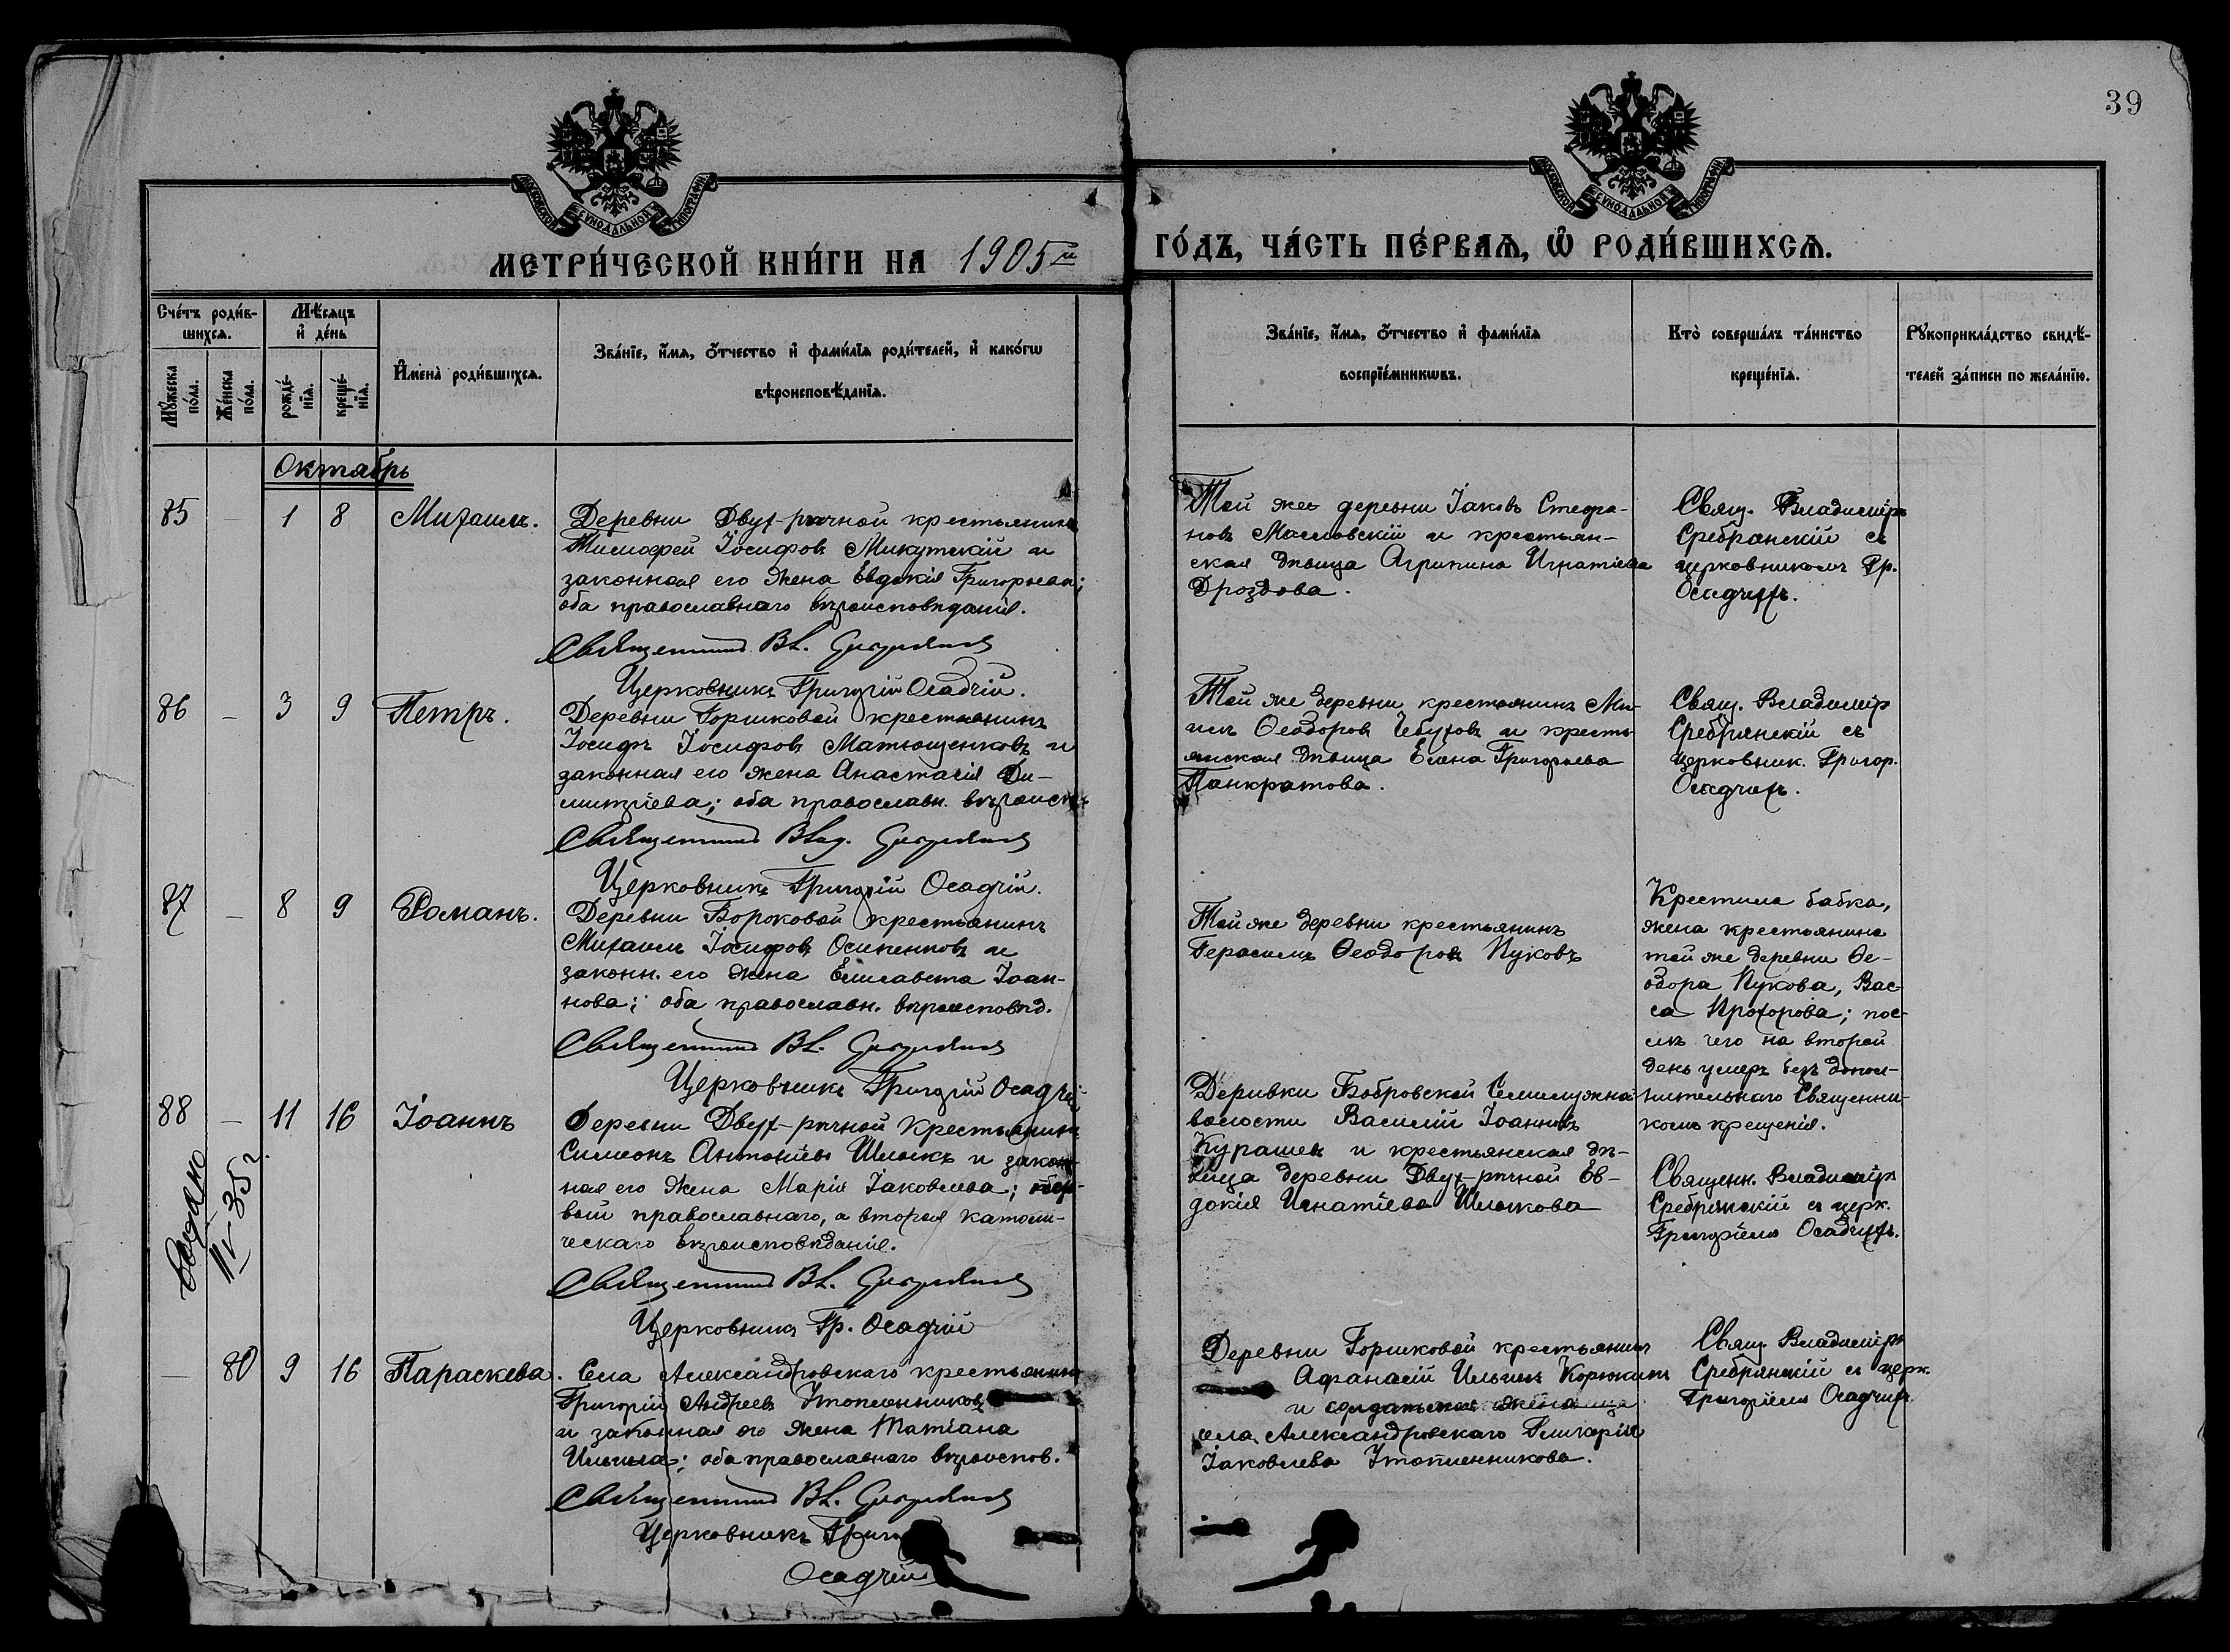 39
МОСКОВСКОЙ СѴНОДАЛЬНОЙ ТИПОГРАФІИ
МОСКОВСКОЙ СѴНОДАЛЬНОЙ ТИПОГРАФІИ
МЕТРИ́ЧЕСКОЙ КНИ́ГИ НА 1905й
ГО́ДЪ, ЧА́СТЬ ПЕ́РВАѦ, Ѡ҆ РОДИ́ВШИХСѦ.
Сче́тъ роди́в-
шихсѧ.
Мꙋ́жеска
по́ла.
Же́нска
по́ла.
Мѣ́сѧцъ
и҆ де́нь
рожде́-
нїѧ.
креще́-
нїѧ.
И҆мена̀ роди́вшихсѧ.
Зва́нїе, и҆́мѧ, ѻ҆́тчество и҆ фами́лїѧ роди́телей, и҆ како́гѡ
вѣроисповѣ́данїѧ.
Зва́нїе, и҆́мѧ, ѻ҆́тчество и҆ фами́лїѧ
воспрїе́мникѡвъ.
Кто̀ соверша́лъ та́инство
креще́нїѧ.
Рꙋкоприкла́дство свидѣ́-
телей за́писи по жела́нїю.
Октябрь
85 – 1 8 Михаилъ.
Деревни Двух-рѣчной крестьянинъ
Тимоѳей Іосифовъ Микутскій и
законная его жена Евдокія Григорьева;
оба православнаго вѣроисповѣданія.
Священникъ Вл. Сребрянскій
Церковникъ Григорій Осадчій.
Той же деревни Іаковъ Стефа-
новъ Масловскій и крестьян-
ская дѣвица Агрипина Игнатіева
Дроздова.
Свящ. Владиміръ
Сребрянскій съ
церковникомъ Гр.
Осадчимъ.
86 – 3 9 Петръ.
Деревни Горшковой крестьянинъ
Іосифъ Іосифовъ Матющенковъ и
законная его жена Анастасія Ди-
митріева; оба православн. вѣроисп.
Священникъ Влад. Сребрянскій
Церковникъ Григорій Осадчій.
Той же деревни крестьянинъ
Ѳеодоровъ Чебуховъ и кресть-
янская дѣвица Елена Григорьева
Панкратова.
Свящ. Владиміръ
Сребрянскій съ
церковник. Григор.
Осадчимъ.
87 – 8 9 Романъ.
Деревни Бороковой крестьянинъ
Михаилъ Іосифовъ Осипенковъ и
законн. его жена Елисавета Іоан-
нова; оба православн. вѣроисповѣд.
Священникъ Вл. Сребрянскій
Церковникъ Григорій Осадчій
Той же деревни крестьянинъ
Герасимъ Ѳеодоровъ Пуковъ
Крестила бабка,
жена крестьянина
той же деревни Ѳе-
одора Пукова, Вас-
са Прохорова; пос-
лѣ чего на второй
день умеръ безъ допол-
нительнаго Священни-
комъ крещенія.
88 – 11 16 Іоаннъ
Деревни Двух-рѣчной крестьянинъ
Симеонъ Антоніевъ Шлыкъ и закон-
ная его жена Марія Іаковлева; пер-
вый православнаго, а вторая католи-
ческаго вѣроисповѣданія.
Священникъ Вл. Сребрянскій
Церковникъ Гр. Осадчій
Выдано
IV 35 г.
Деривки Бобровской Семилужной
волости Василій Іоанновъ
Курашевъ и крестьянская дѣ-
вица деревни Двух-рѣчной Ев-
докія Игнатіева Шлыкова
Священн. Владиміръ
Сребрянскій съ церк.
Григоріемъ Осадчимъ.
– 80 9 16 Параскева.
Села Александровскаго крестьянинъ
Григорій Андреевъ Утопленниковъ
и законная его жена Татіана
Ильина; оба православнаго вѣроиспов.
Священникъ Вл. Сребрянскій
Церковникъ Григо
Осадчій
Деревни Горшковой крестьянинъ
Аѳанасій Ильинъ Корюкинъ
и
села Александровскаго Гликерія
Іаковлева Утопленникова.
Свящ. Владиміръ
Сребрянскій съ церк.
Григоріемъ Осадчимъ.